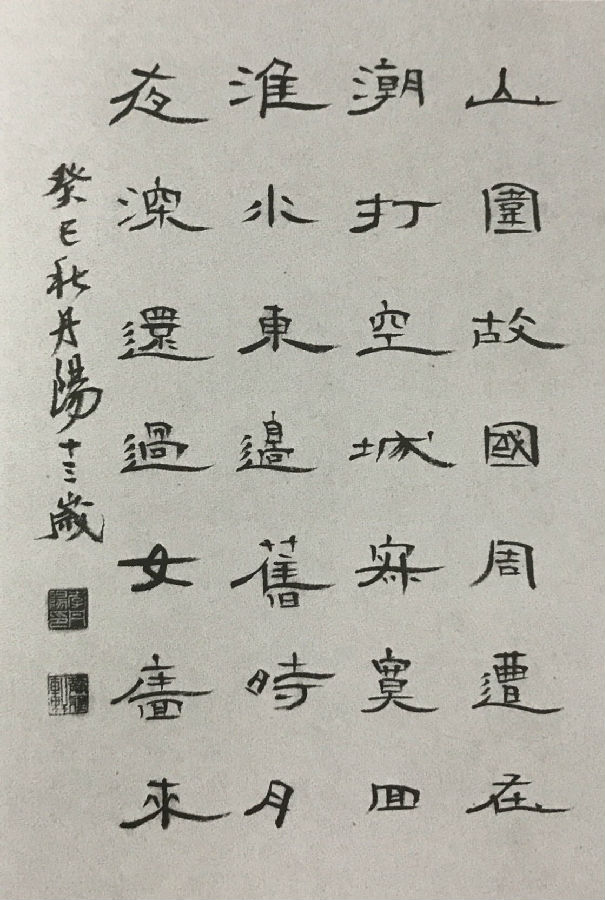 山圍故國周遭在
潮打空城寂寞回
淮水東邊舊時月
夜深還過女牆來
癸巳秋丹陽十三歲